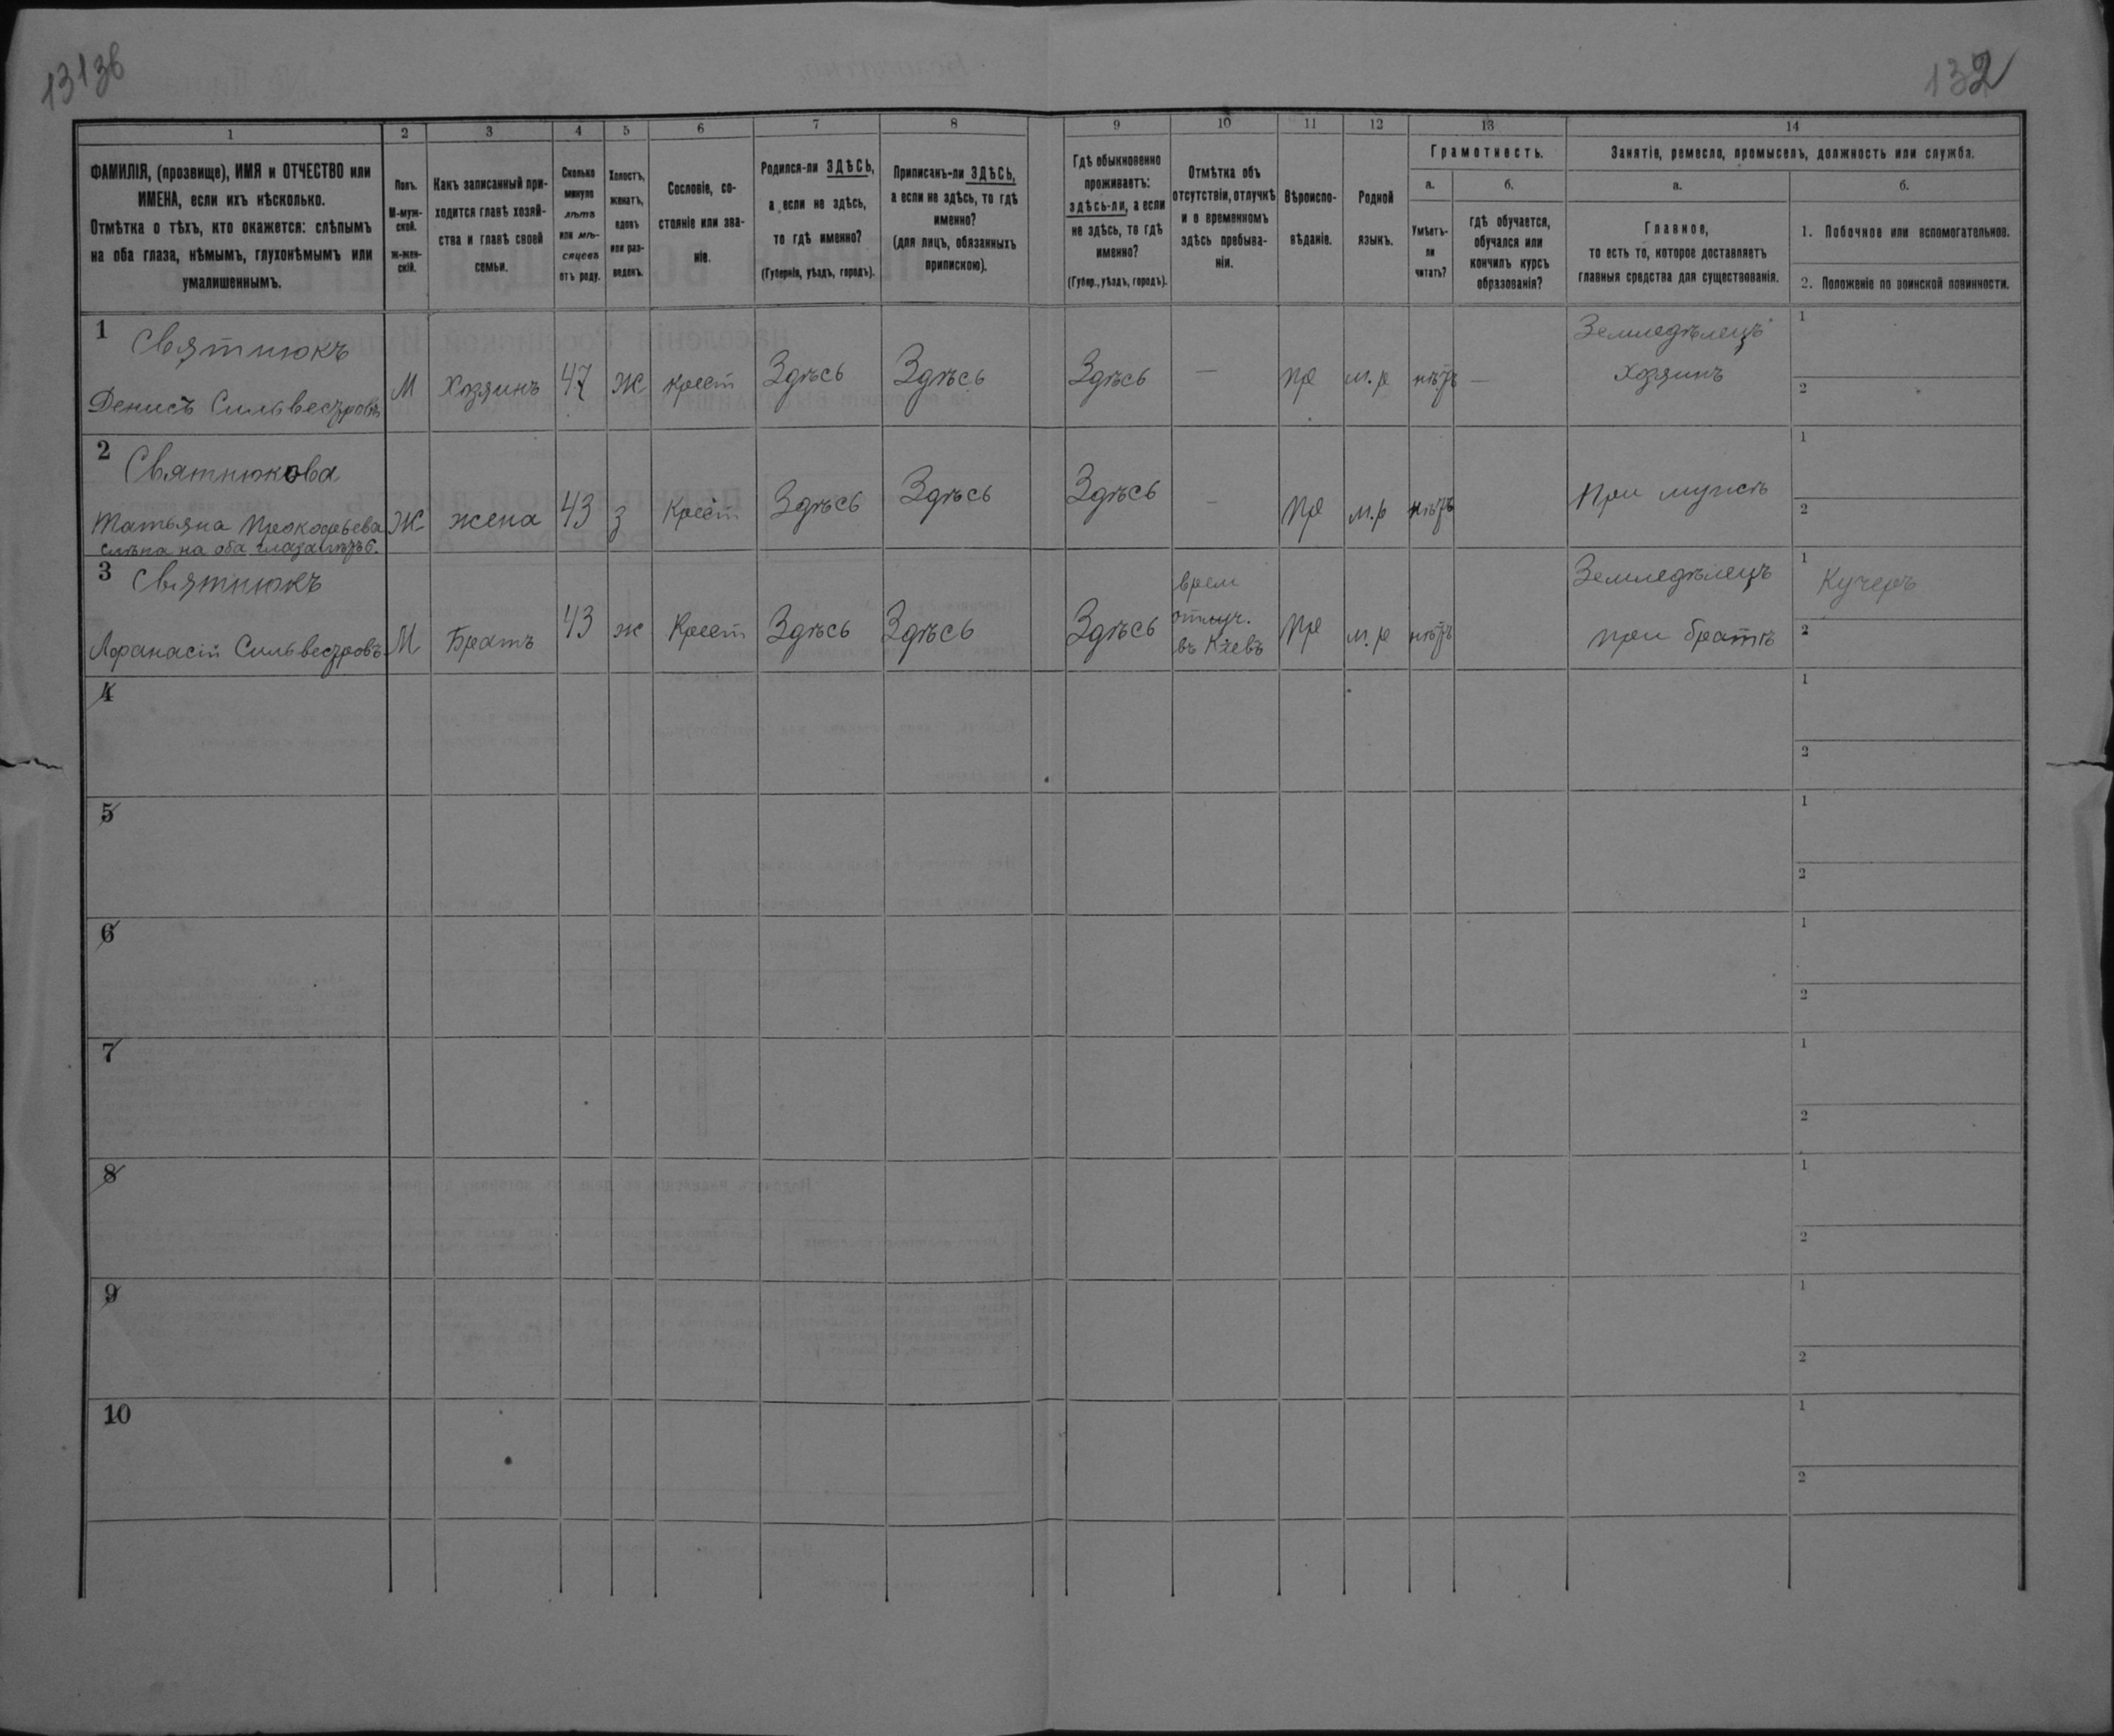 132
1 2 3 4 5 6 7 8 9 10 11 12 13 14
ФАМИЛІЯ, (прозвище), ИМЯ и ОТЧЕСТВО или
ИМЕНА, если ихъ нѣсколько.
Отмѣтка о тѣхъ, кто окажется: слѣпымъ
на оба глаза, нѣмымъ, глухонѣмымъ или
умалишеннымъ.
Полъ.
М-муж-
ской.
ж-жен-
скій.
Какъ записанный при-
ходится главѣ хозяй-
ства и главѣ своей
семьи.
Сколько
минуло
лѣтъ
или мѣ-
сяцевъ
отъ роду.
Холостъ,
женатъ,
вдовъ
или раз-
веденъ.
Сословіе, со-
стояніе или зва-
ніе.
Родился-ли ЗДѢСЬ,
а если не здѣсь,
то гдѣ именно?
(Губернія, уѣздъ, городъ).
Приписанъ-ли ЗДѢСЬ,
а если не здѣсь, то гдѣ
именно?
(для лицъ, обязанныхъ
припискою).
Гдѣ обыкновенно
проживаетъ:
здѣсь-ли, а если
не здѣсь, то гдѣ
именно?
(Губер., уѣздъ, городъ).
Отмѣтка объ
отсутствіи, отлучкѣ
и о временномъ
здѣсь пребыва-
ніи.
Вѣроиспо-
вѣданіе.
Родной
языкъ.
Грамотность.
а.
Умѣетъ-
ли
читать?
б.
гдѣ обучается,
обучался или
кончилъ курсъ
образованія?
Занятіе, ремесло, промыселъ, должность или служба.
а.
Главное,
то есть то, которое доставляетъ
главныя средства для существованія.
б.
1. Побочное или вспомогательное.
2. Положеніе по воинской повинности.
1
Святнюкъ
Денисъ Сильвестровъ
М
Хозяинъ
47
Ж
Крест
Здѣсь
Здѣсь
Здѣсь
—
пр
м.р
нѣтъ
—
Земледѣлецъ
хозяинъ
1
2
2
Святнюкова
Татьяна Прокофьева
слѣпа на оба глаза
Ж
жена
43
з
Крест
Здѣсь
Здѣсь
Здѣсь
—
пр
м.р
нѣтъ
При мужѣ
1
2
3
Святнюкъ
Афанасій Сильвестровъ
М
Братъ
43
ж
Крест
Здѣсь
Здѣсь
Здѣсь
врем
отлуч.
въ Кіевъ
пр
м.р
нѣтъ
Земледѣлецъ
при братѣ
1
Кучеръ
2
4
1
2
5
1
2
6
1
2
7
1
2
8
1
2
9
1
2
10
1
2